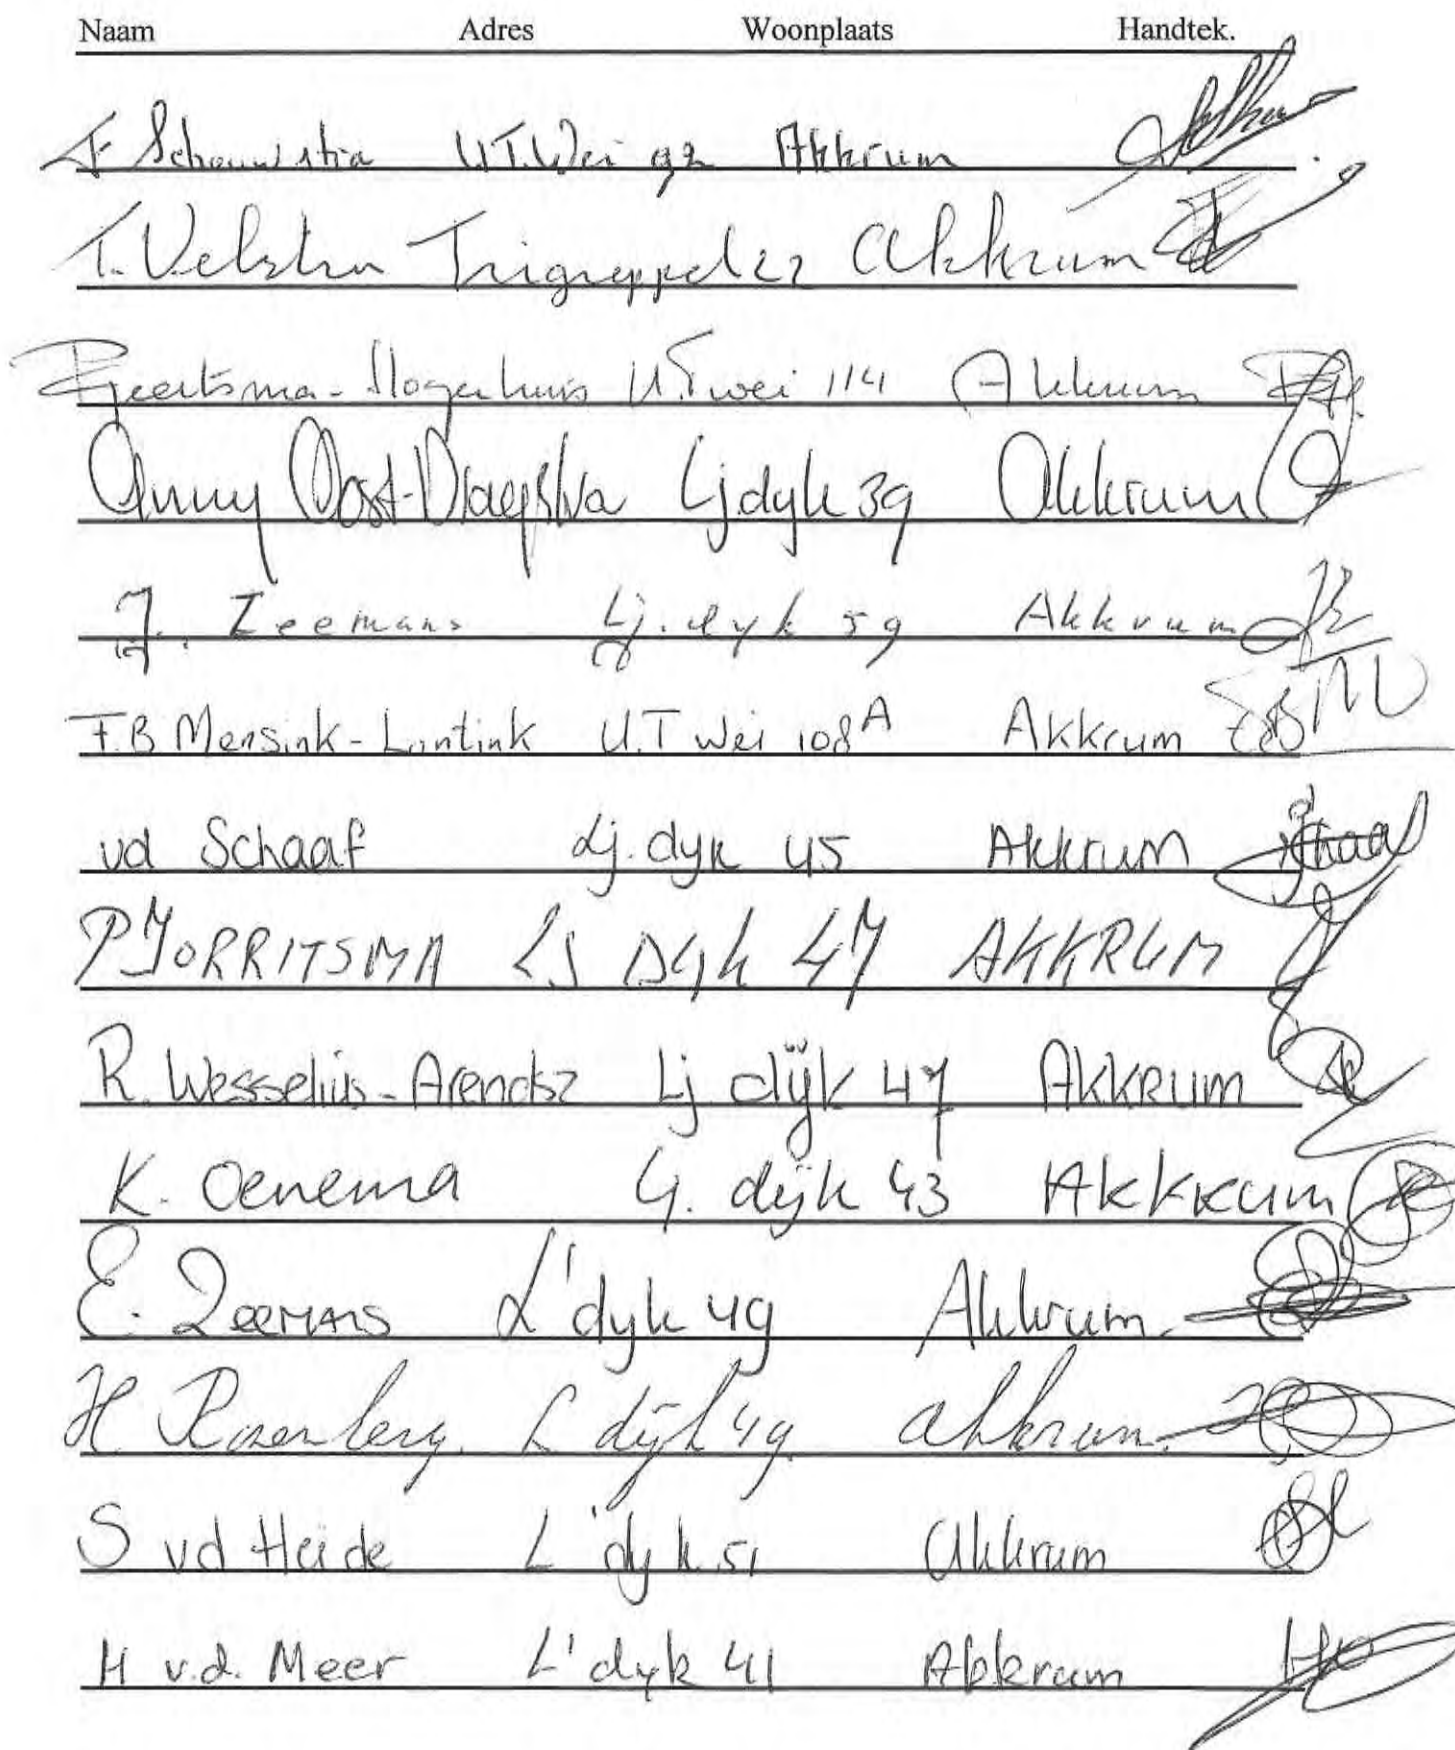 Naam Adres Woonplaats Handtek.
F Schouwstra U.T.Wei 92 Akkrum
T. Velstra Trigreppel 22 Akkrum
Geertsma-Hogerhuis U.T wei 114 Akkrum
Anny Oost- Lj.dyk 39 Akkrum
J. Zeemans Lj. dyk 59 Akkrum
F.B Mensink-Lantink U.T Wei 108A Akkrum
vd Schaaf Lj. dyk 45 Akkrum
P JORRITSMA LJ Dyk 47 AKKRUM
R. Wesselius-Arendsz Lj dijk 47 AKKRUM
K. Oenema Lj. dijk 43 Akkrum
E. Zeemans L'dyk 49 Akkrum
H Rosenberg. L dijk 49 akkrum.
S vd Heide L'dyk 51 Akkrum
H v.d. Meer L'dyk 41 Akkrum